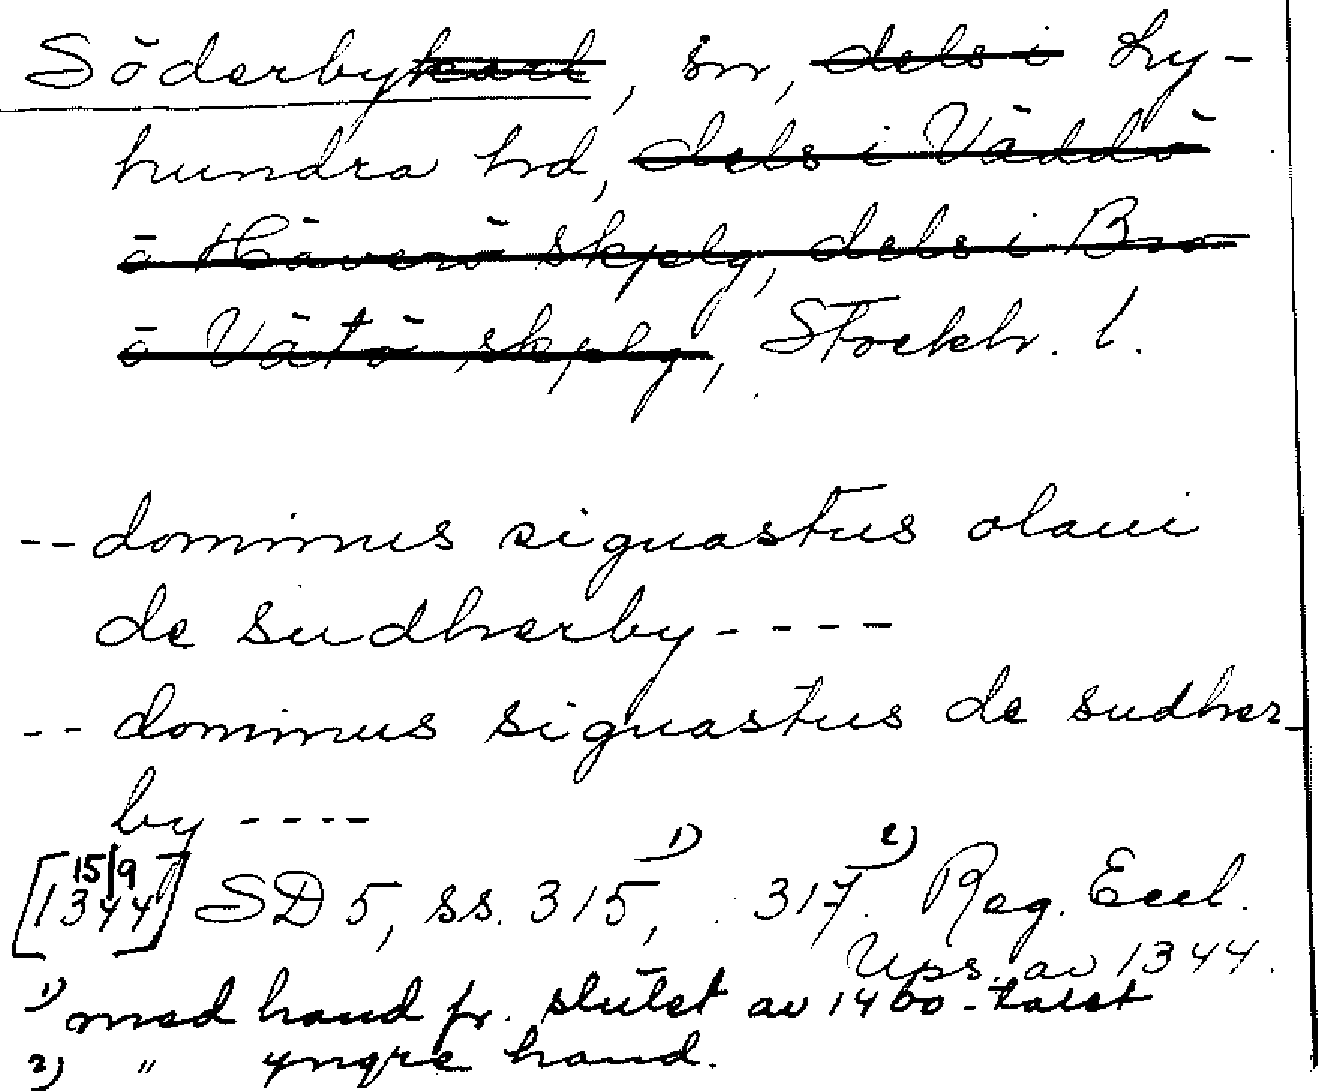 Söderbykarl, sn, dels i Ly-
hundra hd, dels i Väddö
o Häverö skplg, dels i Bro
o Vätö skplg, Stockh. l.
-- dominus siguastus olaui
de sudherby ----
-- dominus siguastus de sudher-
by ----
[15/9 1344] SD 5, ss. 315,1) 317.2) Reg. Eccl.
Ups. av 1344.
1) med hand fr. slutet av 1400-talet
2) " yngre hand.